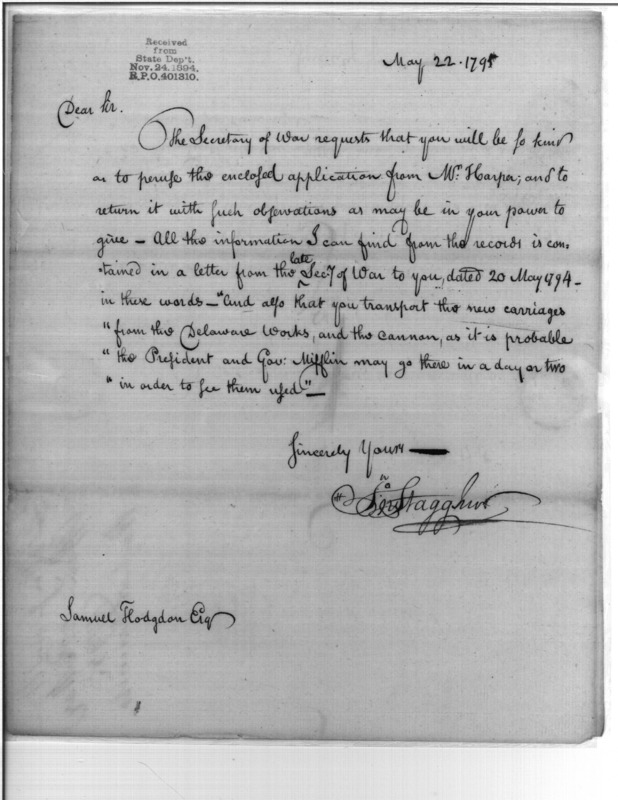 Received
from
State Dep't.
Nov. 24. 1894.
R.P.O. 401310.
May 22. 1795
Dear Sir.
The Secretary of War requests that you will be so kind
as to peruse the enclosed application from Mr. Harper; and to
return it with such observations as may be in your power to
give – All the information I can find from the records is con-
-tained in a letter from the late Secy. of War to you, dated 20 May 1794 –
in these words – "And also that you transport the new carriages
"from the Delaware Works, and the cannon, as it is probable
"the President and Gov: Mifflin may go there in a day or two
"in order to see them used" –
Sincerely Yours
Jno Stagg Junr
Samuel Hodgdon Esq